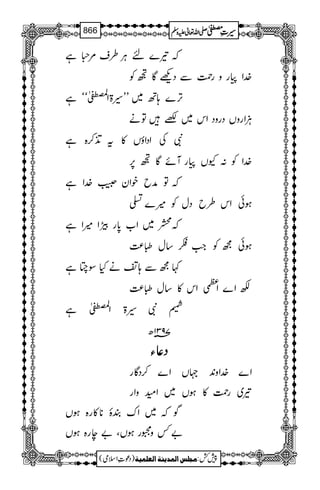 سیرتِ مصطفیٰ صلی اللہ تعالیٰ علیہ وسلم 866
کہ تیرے لئے ہر طرف مرحبا ہے
خدا پیار و رحمت سے دیکھے گا تجھ کو
ترے ہاتھ میں ’’سیرۃ المصطفیٰ‘‘ ہے
ہزاروں درود اس میں لکھے ہیں تونے
نبی کی اداؤں کا یہ تذکرہ ہے
خدا کو نہ کیوں پیار آئے گا تجھ پر
کہ تو مدح خوان حبیب خدا ہے
ہوئی اس طرح دل کو میرے تسلی
کہ محشر میں اب پار بیڑا مرا ہے
ہوئی مجھ کو جب فکر سال طباعت
کہا مجھ سے ہاتف نے کیا سوچتا ہے
لکھ اے اعظمی اس کا سال طباعت
شمیم نبی سیرۃ المصطفیٰ ہے
۱۳۹۷ھ
دعاء
اے خداوند جہاں اے کردگار
تیری رحمت کا ہوں میں امید وار
گو کہ میں اک بندۂ ناکارہ ہوں
بے کس ومجبور ہوں، بے چارہ ہوں
پیش کش: مجلس المدینة العلمیة (دعوت اسلامی)